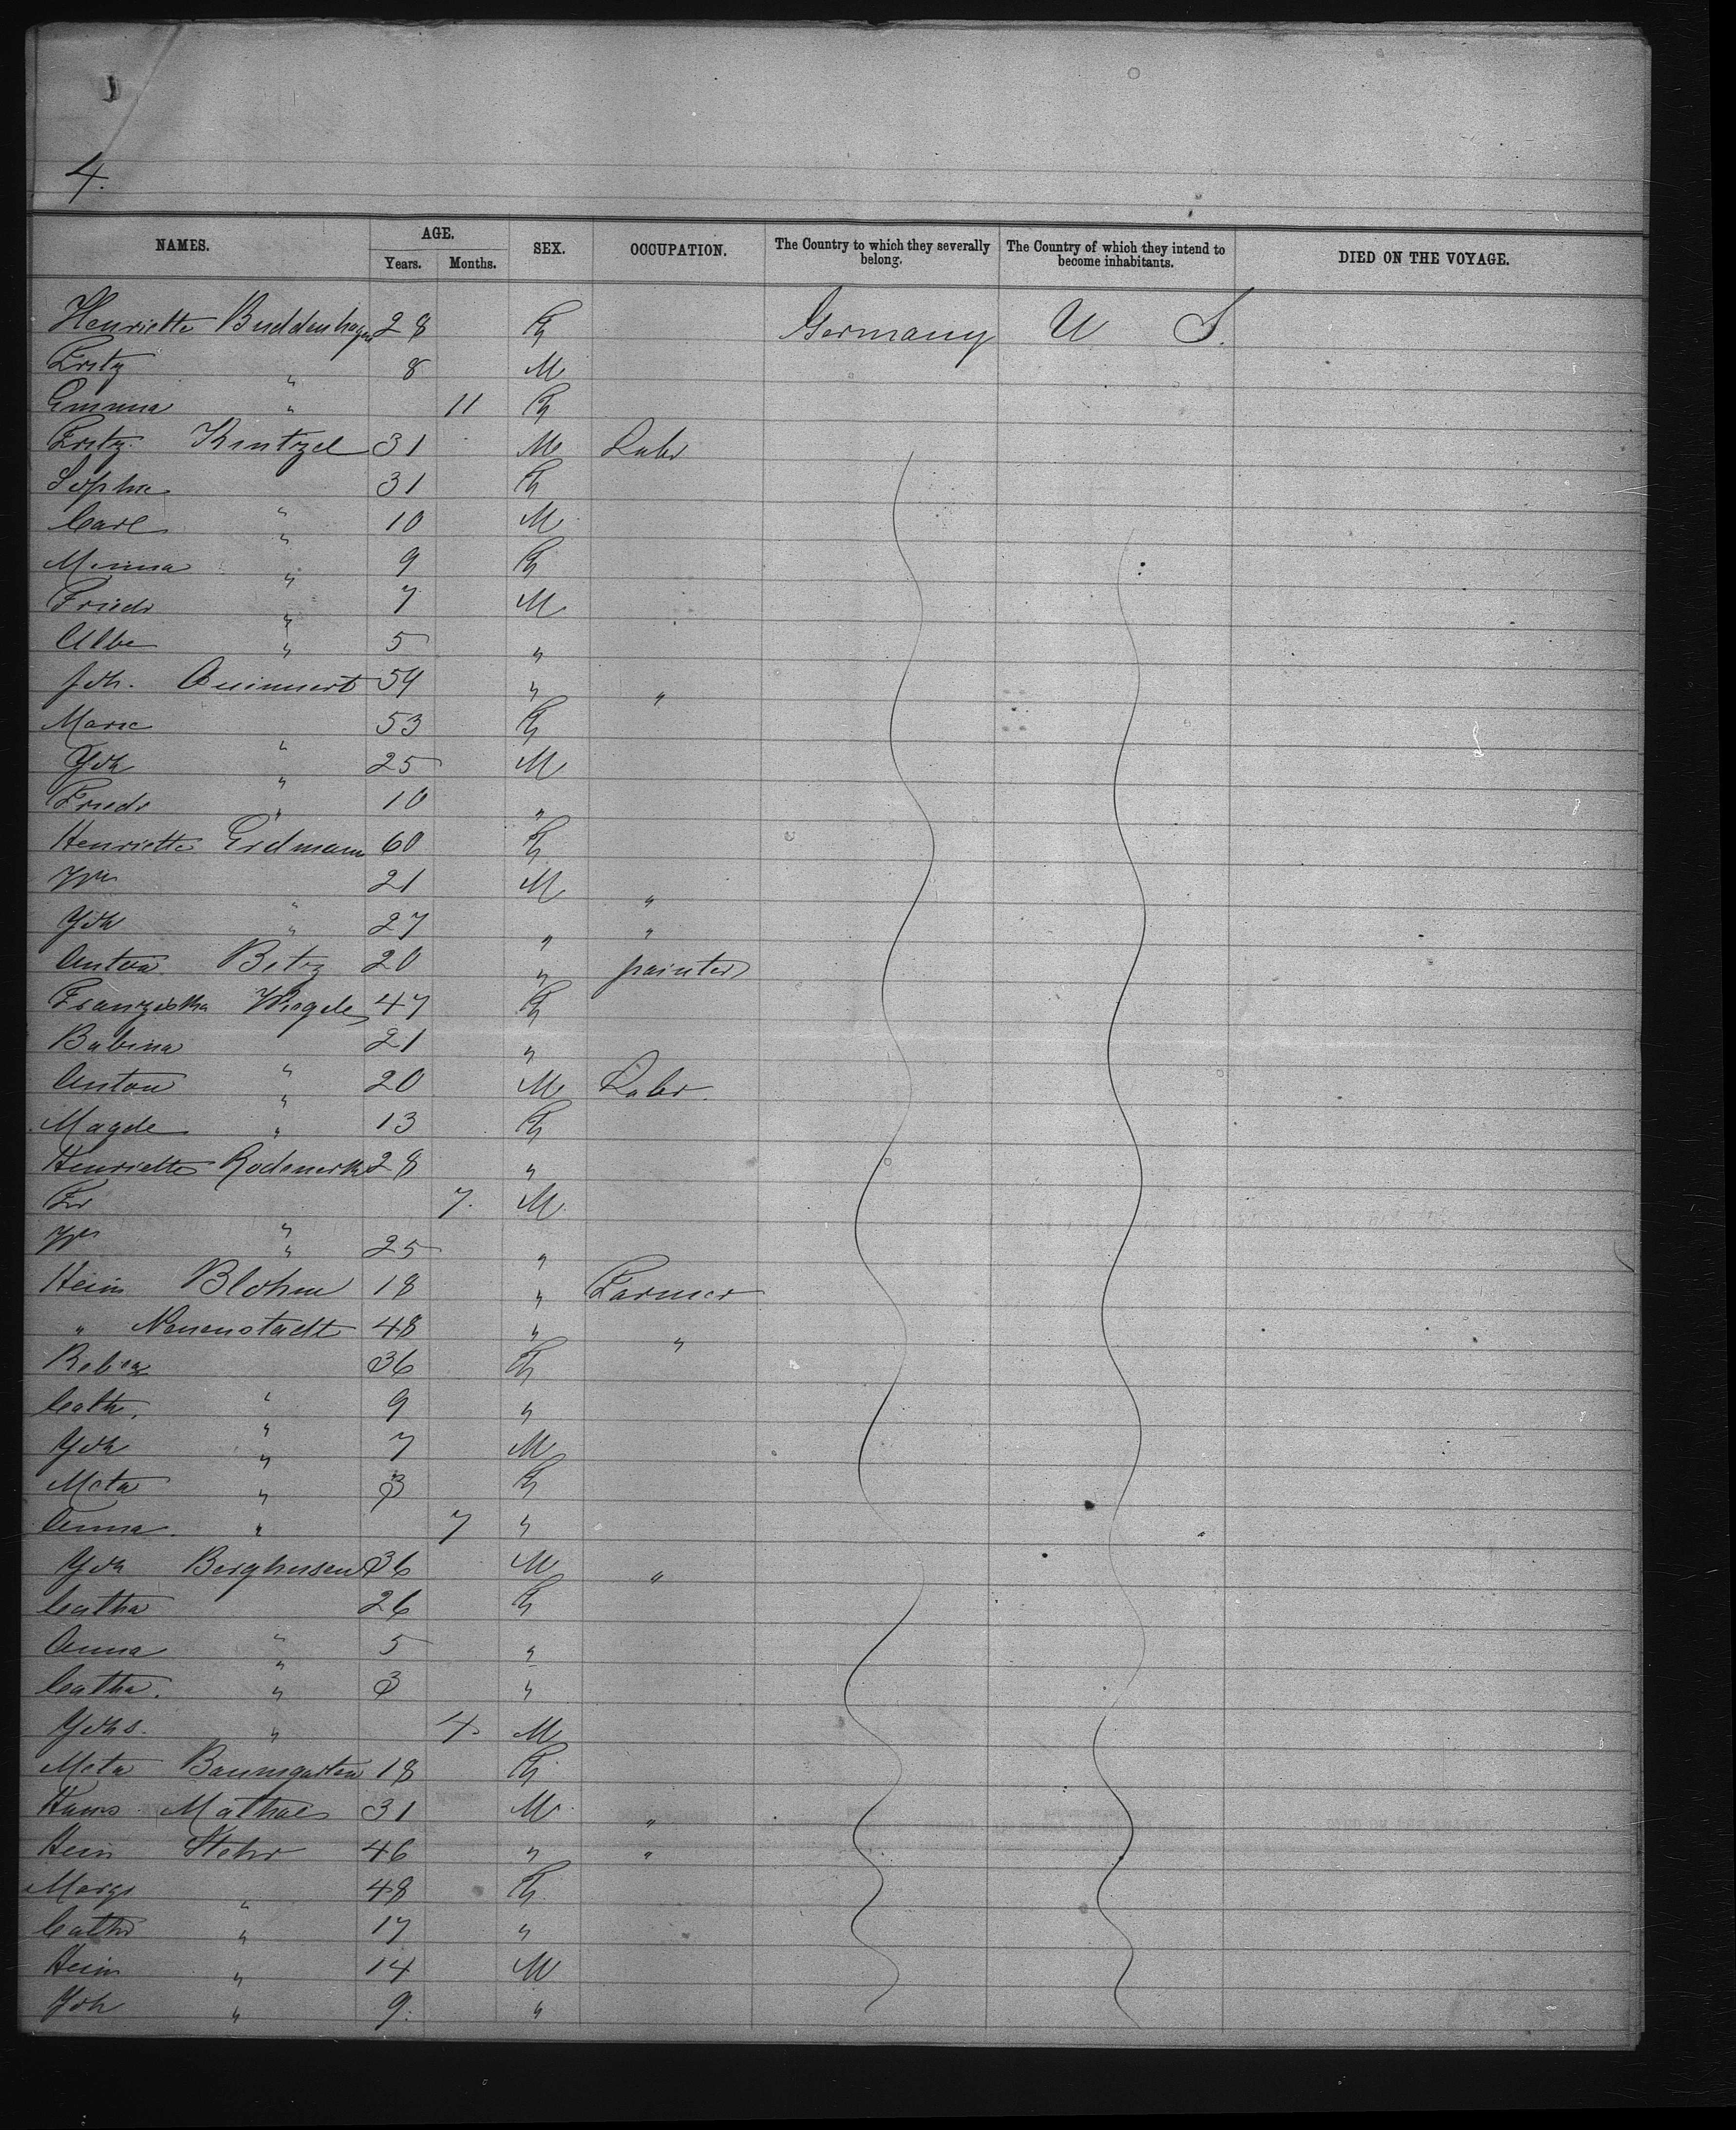 4.
NAMES. AGE. SEX. OCCUPATION. The Country to which they severally belong. The Country of which they intend to become inhabitants. DIED ON THE VOYAGE.
Years. Months.
Henriette Buddenhagen 28 F Germany U S.
Fritz " 8 M
Emma " 11 F
Fritz Kintzel 31 M Labr
Sophie " 31 F
Carl " 10 M
Minna " 9 F
Friedr " 7 M
Albe " 5 "
Joh. 54 " "
Marie " 53 F
Joh " 25 M
Friedr " 10 "
Henriette Erdmann 60 F
Wm " 21 M "
Joh " 27 " "
Anton Betz 20 " painter
Franziska Wiegele 47 F
Babina " 21 "
Anton " 20 M Labr
Magde " 13 F
Henriette 28 "
Fr " 7. M
Wm " 25 "
Hein Blohm 18 " Farmer
" Neuenstadt 48 " "
Rebca " 36 F
Cath. " 9 "
Joh " 7 M
Meta " 3 F
Anna " 7 "
Joh Berghusen 36 M "
Catha " 26 F
Anna " 5 "
Catha. " 3 "
Johs. " 4. M
Meta Baumgarten 18 F
Hans Mathaei 31 M "
Hein Stehr 46 " "
Margr " 48 F
Cathr " 17 "
Hein " 14 M
Joh " 9. "